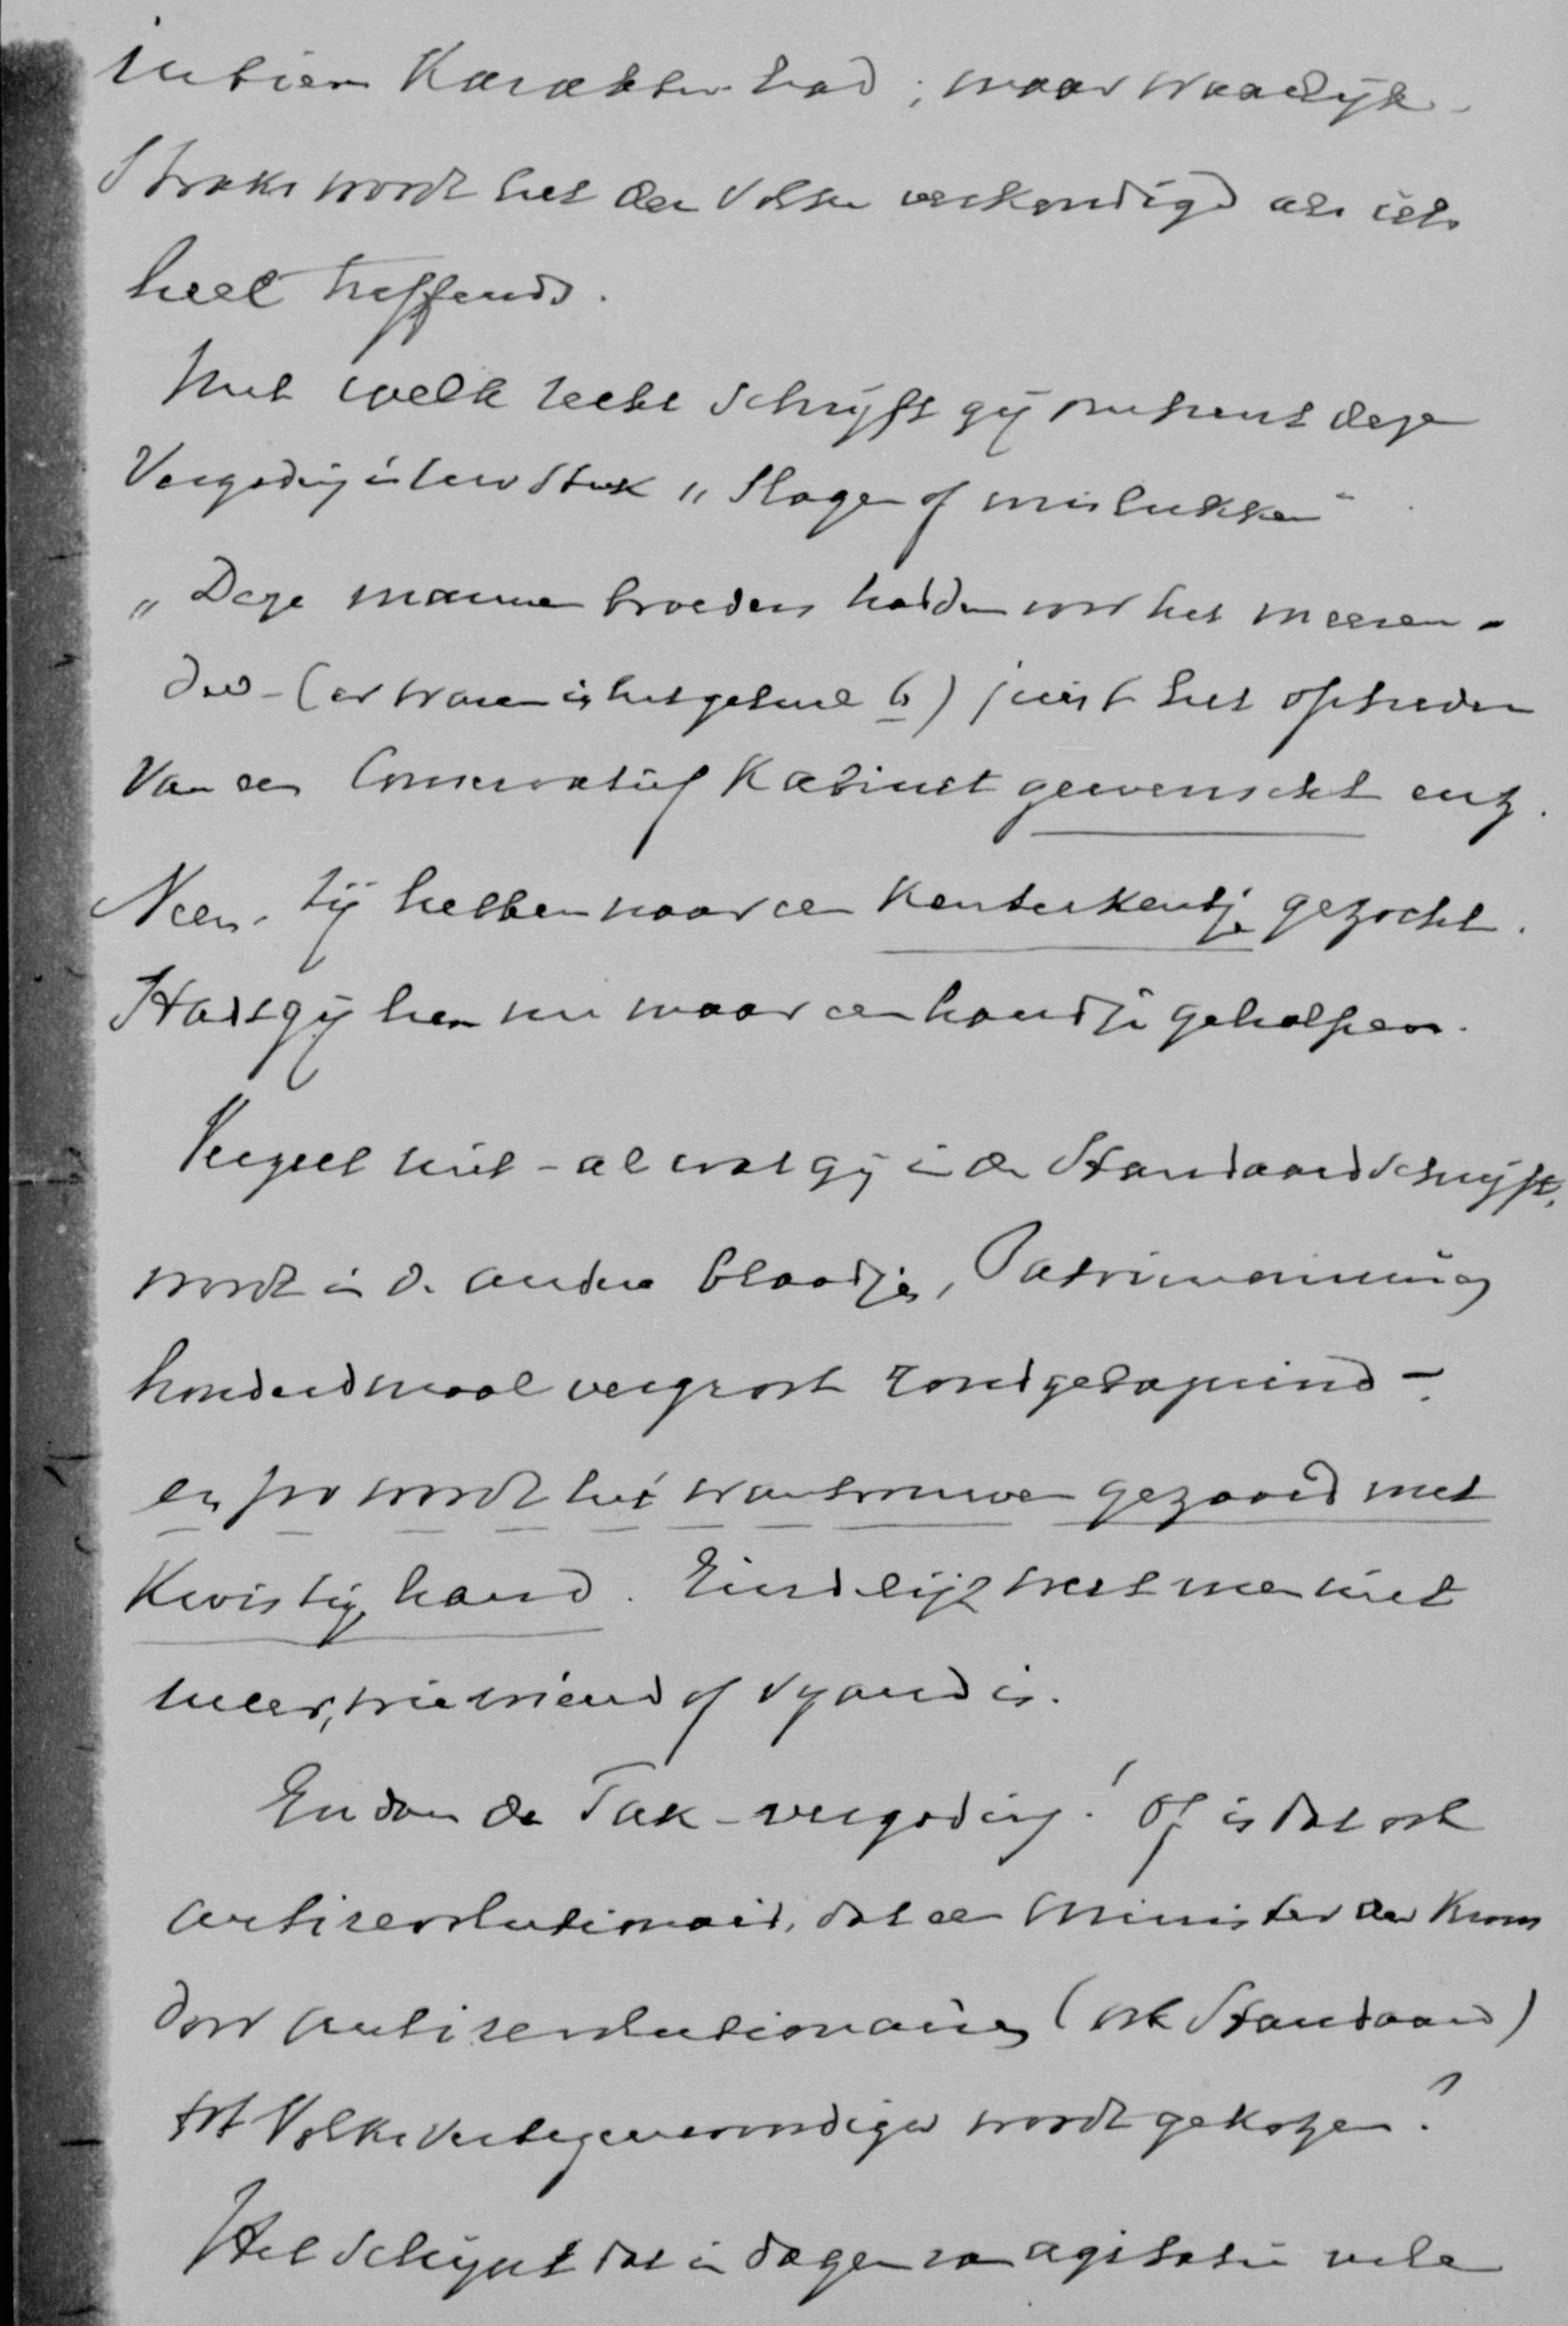 intiem Karakter had; maar waarlijk
Straks wordt het den Volke verkondigd als iets
heel treffends.
Met welk recht schrijft gij omtrent deze
Vergadering in Uw Stuk „Slagen of mislukken"
„Deze mannen broeders hadden voor het meeren-
deel - (er waren in het geheel 6) juist het optreden
Van een Conservatief Kabinet gewenscht enz.
Neen. Zij hebben naar een Kenterkentje gezocht.
Hadt gij hen nu maar een handje geholpen.
Vergeet niet - al wat gij in de Standaard schrijft,
wordt in de andere blaadjes, Patrimonium
honderdmaal vergroot rondgebazuind -
en zoo wordt het wantrouwen gezaaid met
Kwistige hand. Eindelijk weet men niet
meer, wie vriend of vyand is.
En dan de Tak-vergoding! Of is dat ook
antirevolutionair, dat een Minister der Kroon
door antirevolutionairen (ook Standaard)
tot Volksvertegenwoordiger wordt gekozen?
Het schijnt dat in dagen van agitatie vele